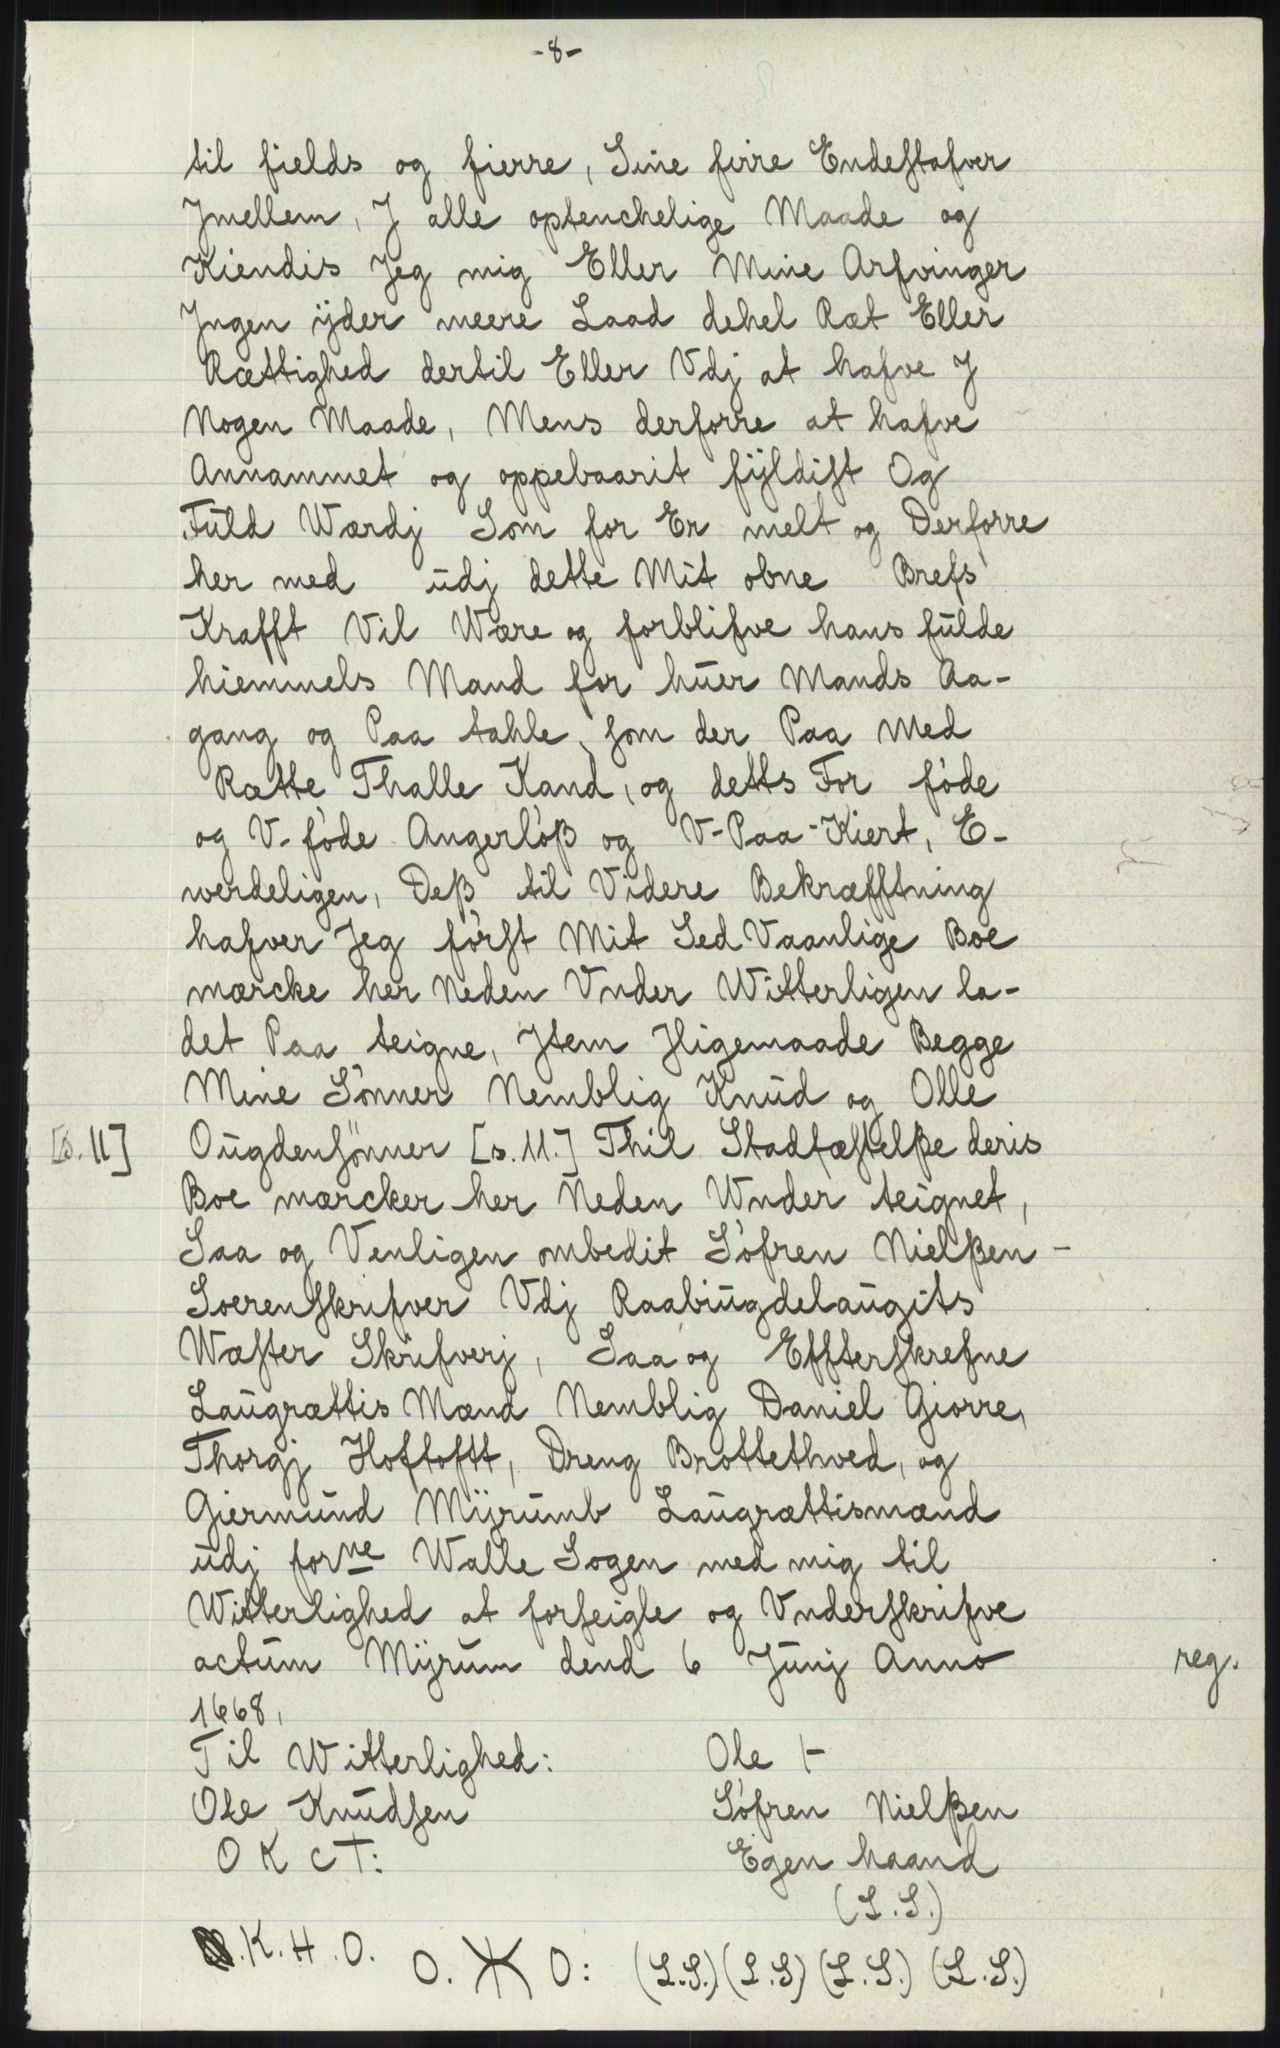 -8-
til fields og fierre, Sine firre Endestafver
Jmellem, J alle optenchelige Maade og
Kiendis Jeg mig Eller Mine Arfvinger
Jngen ÿder meere Laad dehel Ræt Eller
Rættighed dertil Eller Vdj at hafve J
Nogen Maade, Mens derforre at hafve
Annammet og oppebaarit fÿldist Og
Fŭld Wærdj Som for Er melt og Derforre
her med ŭdj dette Mit obne Brefs
Krafft Vil Wære og forblifve hans fŭlde
hiemmels Mand for hŭer Mands Aa-
gang og Paa tahle, som der Paa Med
Rætte Thalle Kand, og detts For føde
og V-føde Angerløß og V-Paa-Kiert, E-
werdeligen, Deß til Videre Bekræfftning
hafver Jeg først Mit Sed Vaanlige Boe
mærcke her Neden Vnder Witterligen la-
det Paa teigne, Jtem Jligemaade Begge
Mine Sønner Nemblig Knŭd og Olle
[s. 11] Oŭgdensønner [s. 11.] Thil Stadfæstelße deris
Boe mærcker her Neden Wnder teignet,
Saa og Venligen ombedit Søfren Nielßen -
Soerenskrifver Vdj Raabiŭgdelaŭgits
Wæster Skrifverj, Saa og Effterskrefne
Laŭgrættis Mænd Nemblig Daniel Giorre,
Thorgj Hoftoftt, Dreng Brottethved, og
Giermŭnd Mÿrŭmb Laŭgrættismænd
ŭdj forne Walle Sogen med mig til
Witterlighed at forseigle og Vnderskrifve
actŭm Mÿrŭm dend 6 Jŭnj Anno reg.
1668,
Til Witterlighed: Ole
Ole Knŭdsen Søfren Nielßen
O K c T: Egen haand
(L.S.)
.K.H.O. O. O: (L.S.) (L.S) (L.S.) (L.S.)